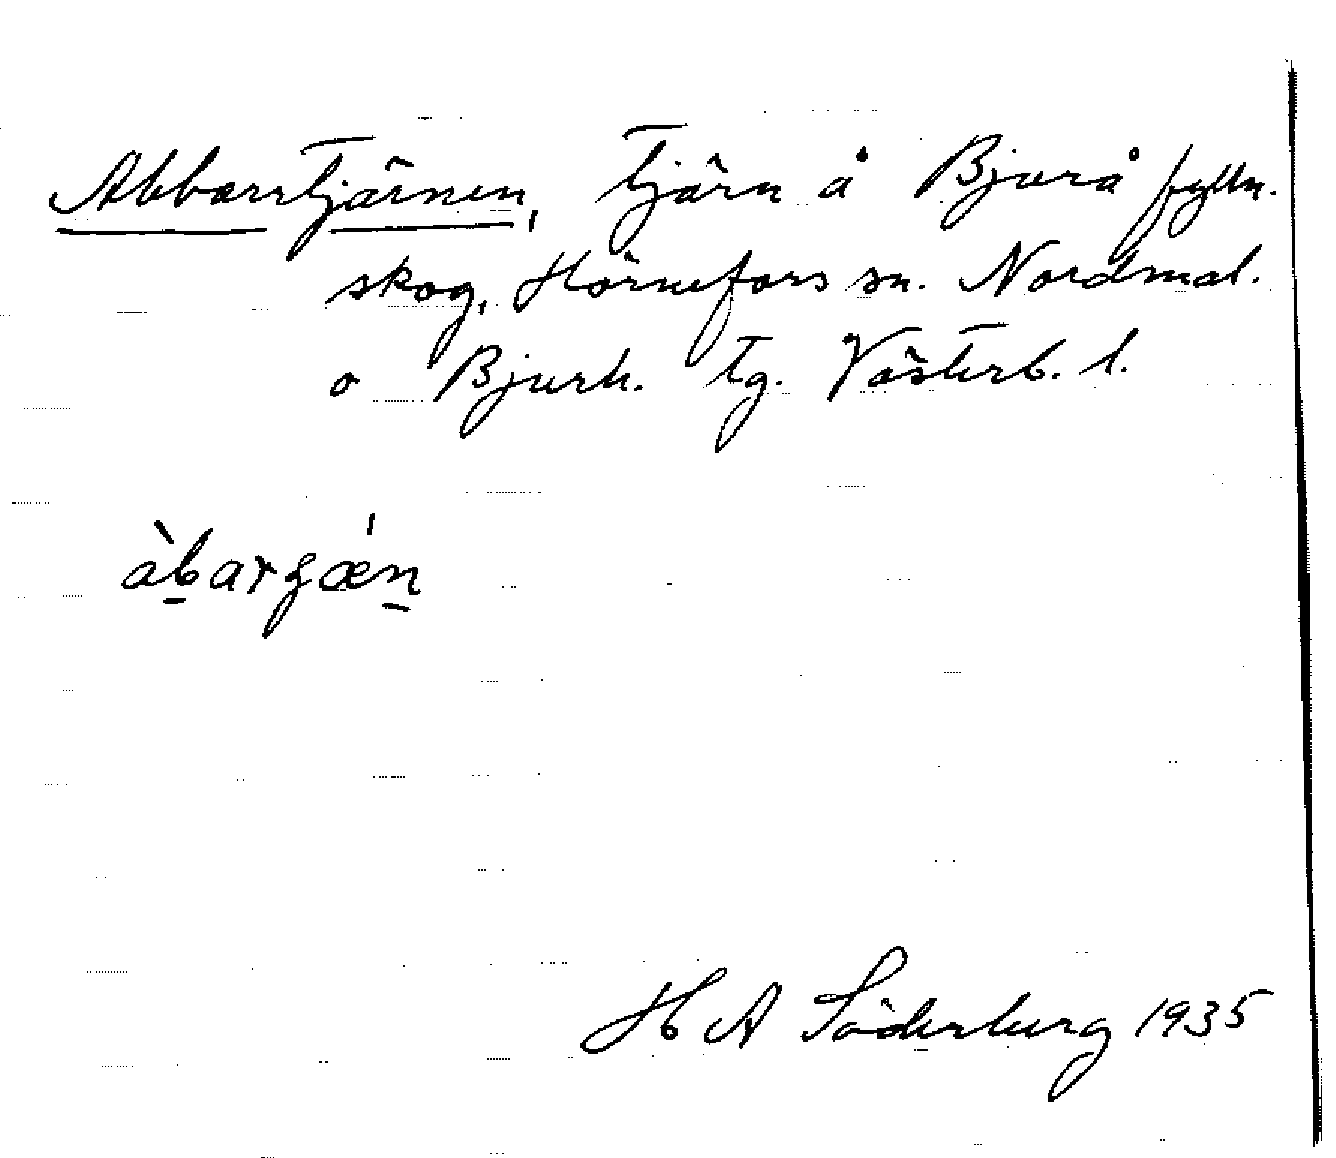 Abborrtjärnen, tjärn å Bjurå fylln.
skog, Hörnefors sn. Nordmal.
o Bjurh. tg. Västerb. l.
àbarʒǽn
H A Söderberg 1935